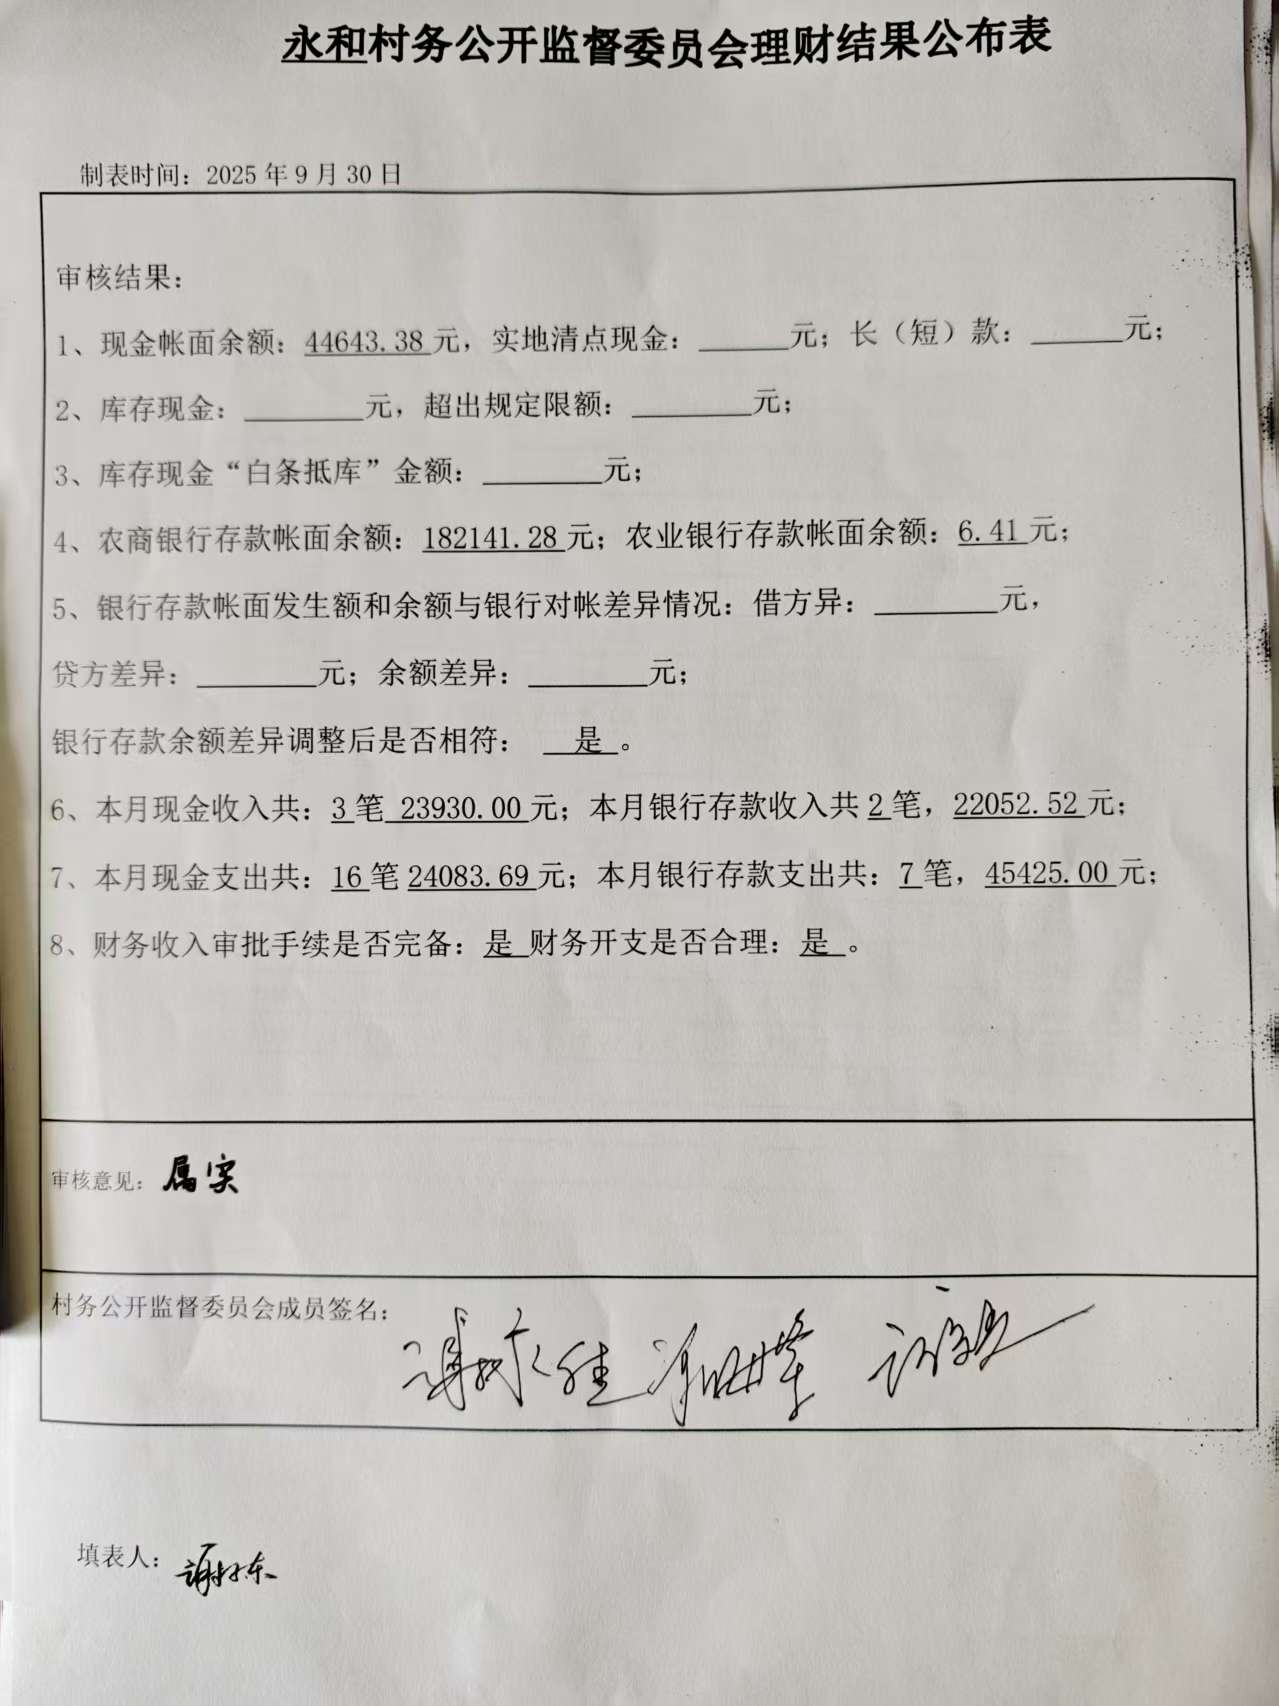 永和村务公开监督委员会理财结果公布表
制表时间：2025年9月30日
审核结果：
1、现金帐面余额：44643.38元，实地清点现金：______元；长（短）款：______元；
2、库存现金：________元，超出规定限额：________元；
3、库存现金“白条抵库”金额：________元；
4、农商银行存款帐面余额：182141.28元；农业银行存款帐面余额：6.41元；
5、银行存款帐面发生额和余额与银行对帐差异情况：借方异：________元，
贷方差异：________元；余额差异：________元；
银行存款余额差异调整后是否相符：是。
6、本月现金收入共：3笔 23930.00元；本月银行存款收入共2笔，22052.52元；
7、本月现金支出共：16笔24083.69元；本月银行存款支出共：7笔，45425.00元；
8、财务收入审批手续是否完备：是 财务开支是否合理：是。
审核意见：属实
村务公开监督委员会成员签名：
填表人：